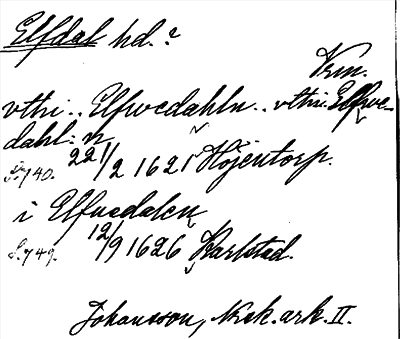 Elfdal hd.?
Vrm.
vthi.. Elfwedahln.. vthi Elfwe-
dahl: n
S. 740. 22 1/2 1621 Höjentorp.
i Elfuedalen
S. 749. 12/9 1626 Karlstad.
Johansson, Nek. ark. II.